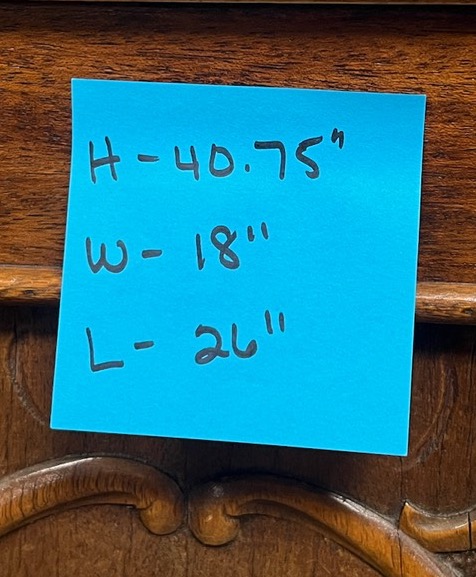 H - 40.75"
W - 18"
L - 26"